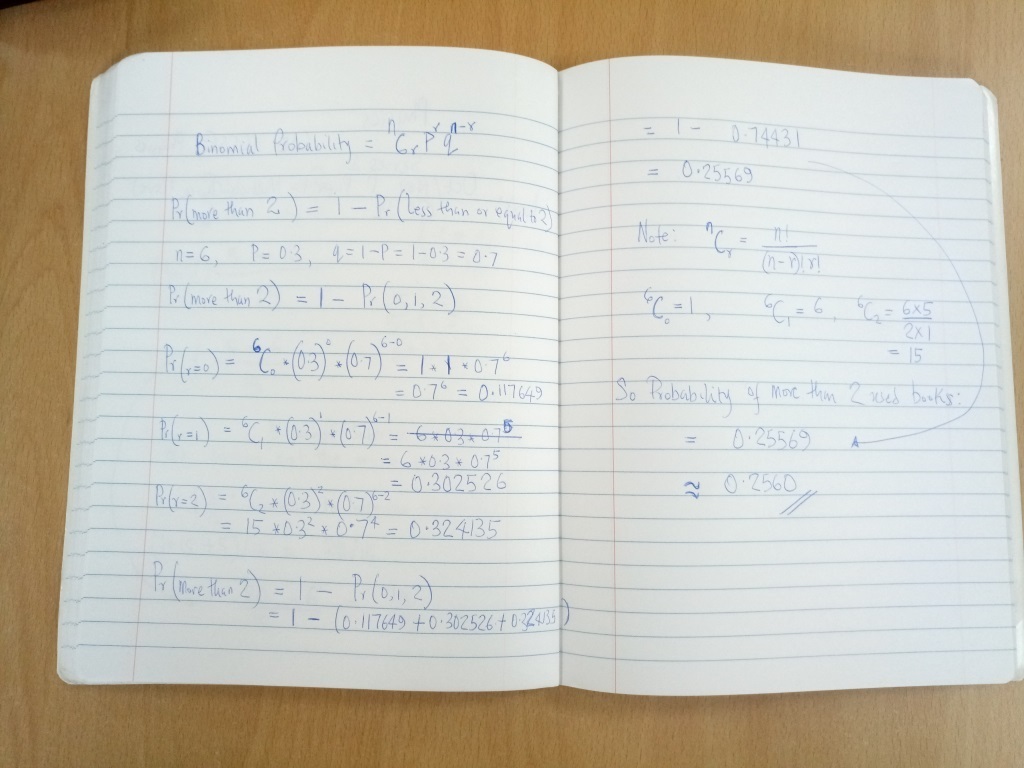 Binomial Probability = ⁿCᵣ Pʳ qⁿ⁻ʳ
Pr(more than 2) = 1 − Pr(less than or equal to 2)
n=6, P=0.3, q=1−P=1−0.3=0.7
Pr(more than 2) = 1 − Pr(0,1,2)
Pr(r=0) = ⁶C₀ * (0.3)⁰ * (0.7)⁶⁻⁰ = 1 * 1 * 0.7⁶
= 0.7⁶ = 0.117649
Pr(r=1) = ⁶C₁ * (0.3)¹ * (0.7)⁶⁻¹ = 6*0.3*0.7⁵
= 6*0.3*0.7⁵
= 0.302526
Pr(r=2) = ⁶C₂ * (0.3)² * (0.7)⁶⁻²
= 15 * 0.3² * 0.7⁴ = 0.324135
Pr(more than 2) = 1 − Pr(0,1,2)
= 1 − (0.117649 + 0.302526 + 0.324135)
= 1 − 0.74431
= 0.25569
Note: ⁿCᵣ = n!/(n−r)!r!
⁶C₀ = 1, ⁶C₁ = 6, ⁶C₂ = 6×5/2×1
= 15
So Probability of more than 2 used books:
= 0.25569
≈ 0.2560